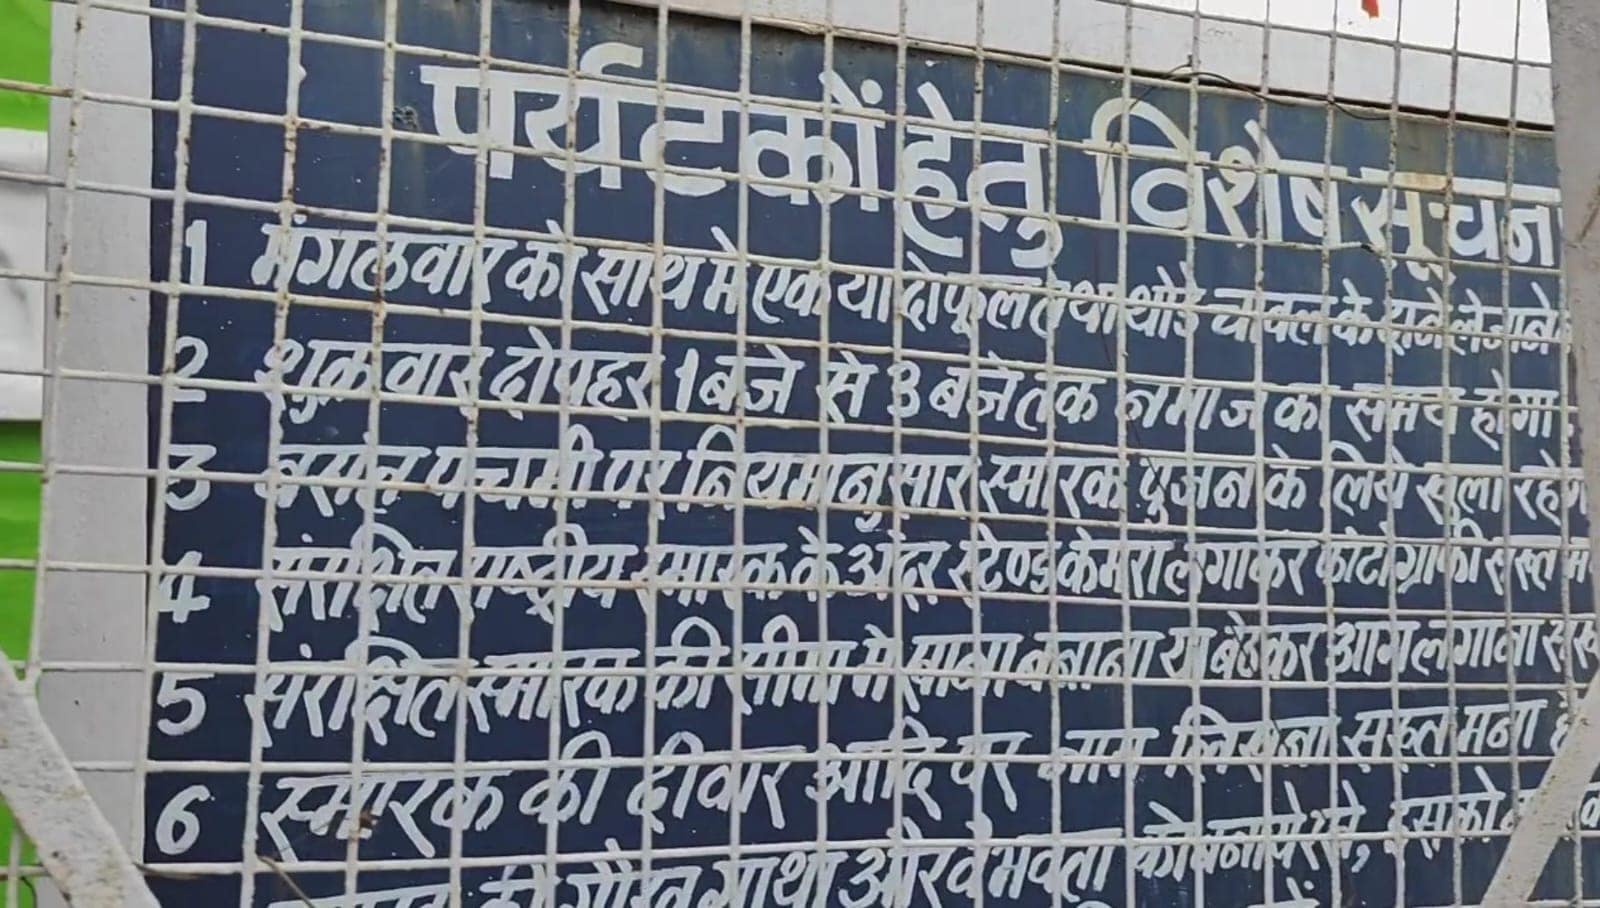 पर्यटकों हेतु विशेष सूचना
1 मंगलवार को साथ मे एक या दो फूल तथा थोडे चांवल के दाने ले जाने
2 शुक्रवार दोपहर 1 बजे से 3 बजे तक नमाज का समय होगा
3 बसंत पंचमी पर नियमानुसार स्मारक पूजन के लिये खुला रहेगा
4 संरक्षित राष्ट्रीय स्मारक के अंदर स्टेण्ड केमरा लगाकर फोटोग्राफी सख्त
5 संरक्षित स्मारक की सीमा मे खाना बनाना या बैठकर आग लगाना
6 स्मारक की दीवार आदि पर नाम लिखना सख्त मना है
की गौरव गाथा और वैभवता को बनाये रखे, इसको